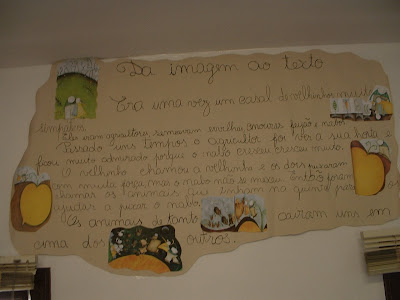 Da imagem ao texto
Era uma vez um casal de velhinhos muito
simpáticos.
Eles eram agricultores, semearam ervilhas, cenouras, feijão e nabos.
Passado uns tempos o agricultor foi ver a sua horta e
ficou muito admirado porque o nabo cresceu, cresceu muito.
O velhinho chamou a velhinha e os dois puxaram
com muita força, mas o nabo não se mexeu. Então foram
chamar os animais que tinham na quinta para os
ajudar a puxar o nabo.
Os animais de tanto caíram uns em
cima dos outros.